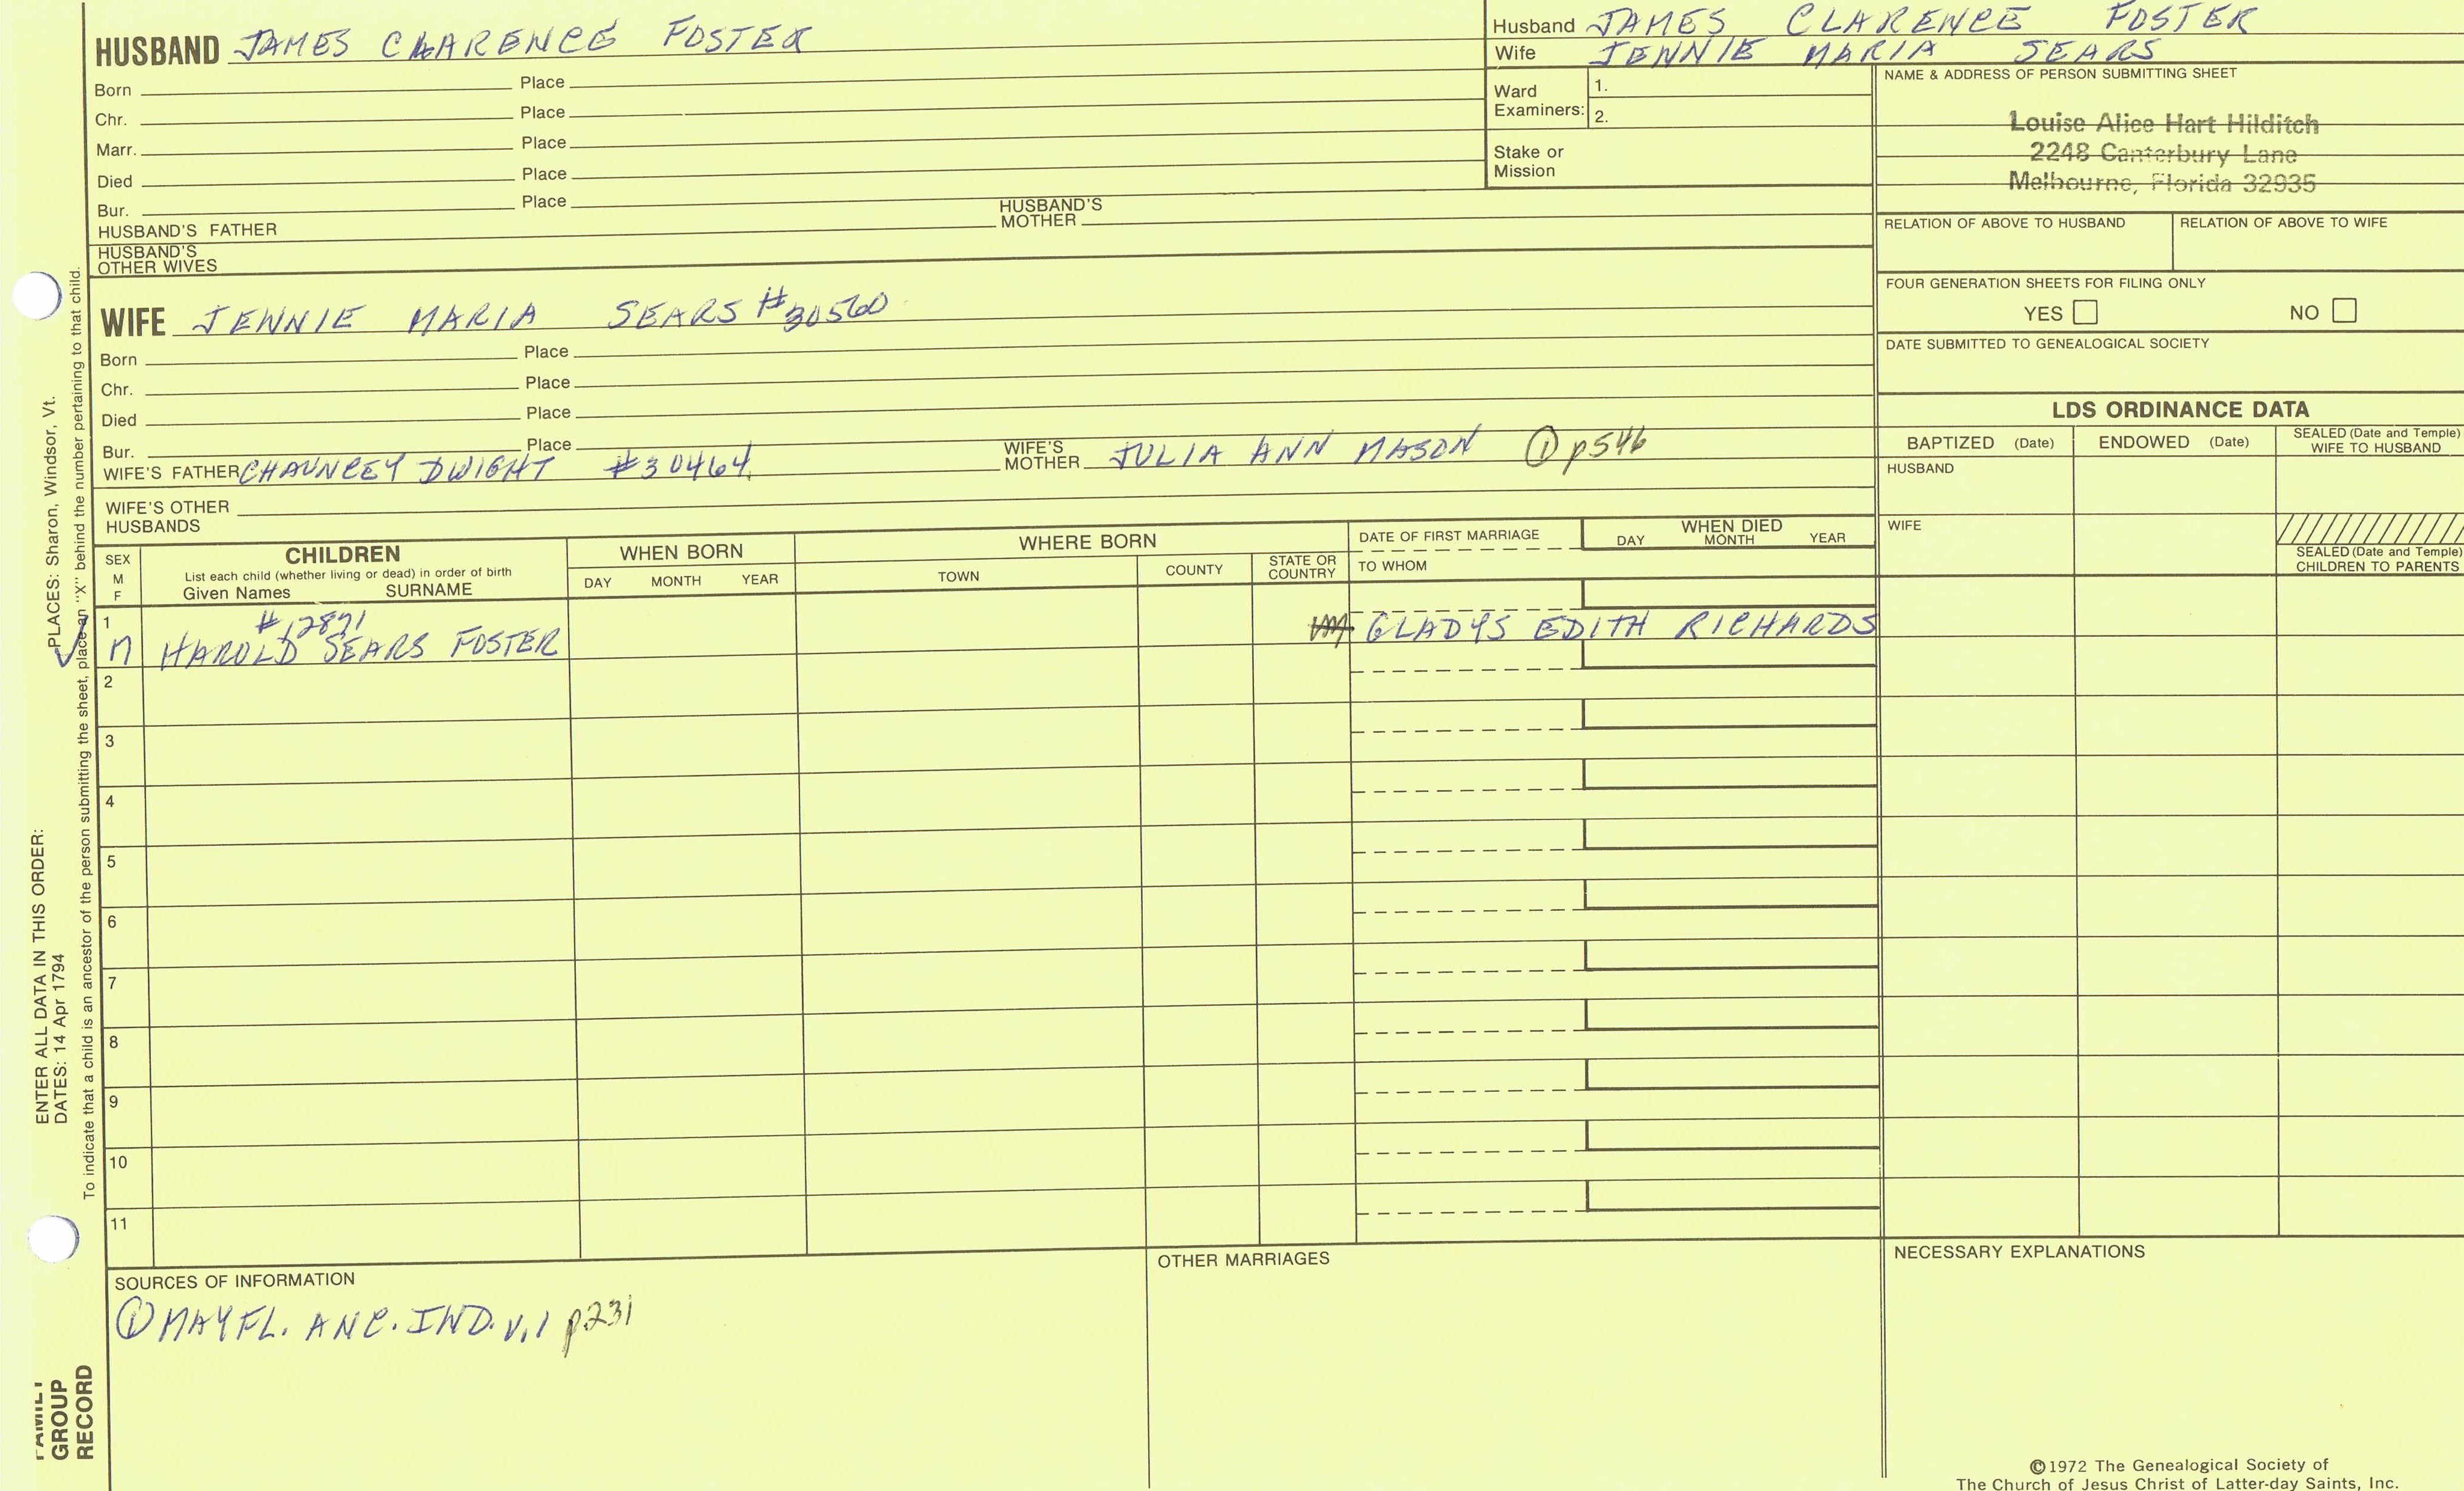 HUSBAND JAMES CLARENCE FOSTER
Born Place
Chr. Place
Marr. Place
Died Place
Bur. Place
HUSBAND'S FATHER HUSBAND'S MOTHER
HUSBAND'S OTHER WIVES
WIFE JENNIE MARIA SEARS #30560
Born Place
Chr. Place
Died Place
Bur. Place
WIFE'S FATHER CHAUNCEY DWIGHT #30464 WIFE'S MOTHER JULIA ANN MASON ① p546
WIFE'S OTHER HUSBANDS
Husband JAMES CLARENCE FOSTER
Wife JENNIE MARIA SEARS
Ward Examiners: 1.
2.
Stake or Mission
NAME & ADDRESS OF PERSON SUBMITTING SHEET
Louise Alice Hart Hilditch
2248 Canterbury Lane
Melbourne, Florida 32935
RELATION OF ABOVE TO HUSBAND RELATION OF ABOVE TO WIFE
FOUR GENERATION SHEETS FOR FILING ONLY
YES NO
DATE SUBMITTED TO GENEALOGICAL SOCIETY
LDS ORDINANCE DATA
BAPTIZED (Date) ENDOWED (Date) SEALED (Date and Temple) WIFE TO HUSBAND
HUSBAND
WIFE
SEALED (Date and Temple) CHILDREN TO PARENTS
SEX M F
CHILDREN
List each child (whether living or dead) in order of birth
Given Names SURNAME
WHEN BORN
DAY MONTH YEAR
WHERE BORN
TOWN COUNTY STATE OR COUNTRY
DATE OF FIRST MARRIAGE
TO WHOM
WHEN DIED
DAY MONTH YEAR
1 #12871
M HAROLD SEARS FOSTER GLADYS EDITH RICHARDS
2
3
4
5
6
7
8
9
10
11
SOURCES OF INFORMATION
① MAYFL. ANC. IND. V.1 p231
OTHER MARRIAGES
NECESSARY EXPLANATIONS
©1972 The Genealogical Society of
The Church of Jesus Christ of Latter-day Saints, Inc.
ENTER ALL DATA IN THIS ORDER:
DATES: 14 Apr 1794 PLACES: Sharon, Windsor, Vt.
To indicate that a child is an ancestor of the person submitting the sheet, place an "X" behind the number pertaining to that child.
FAMILY
GROUP
RECORD